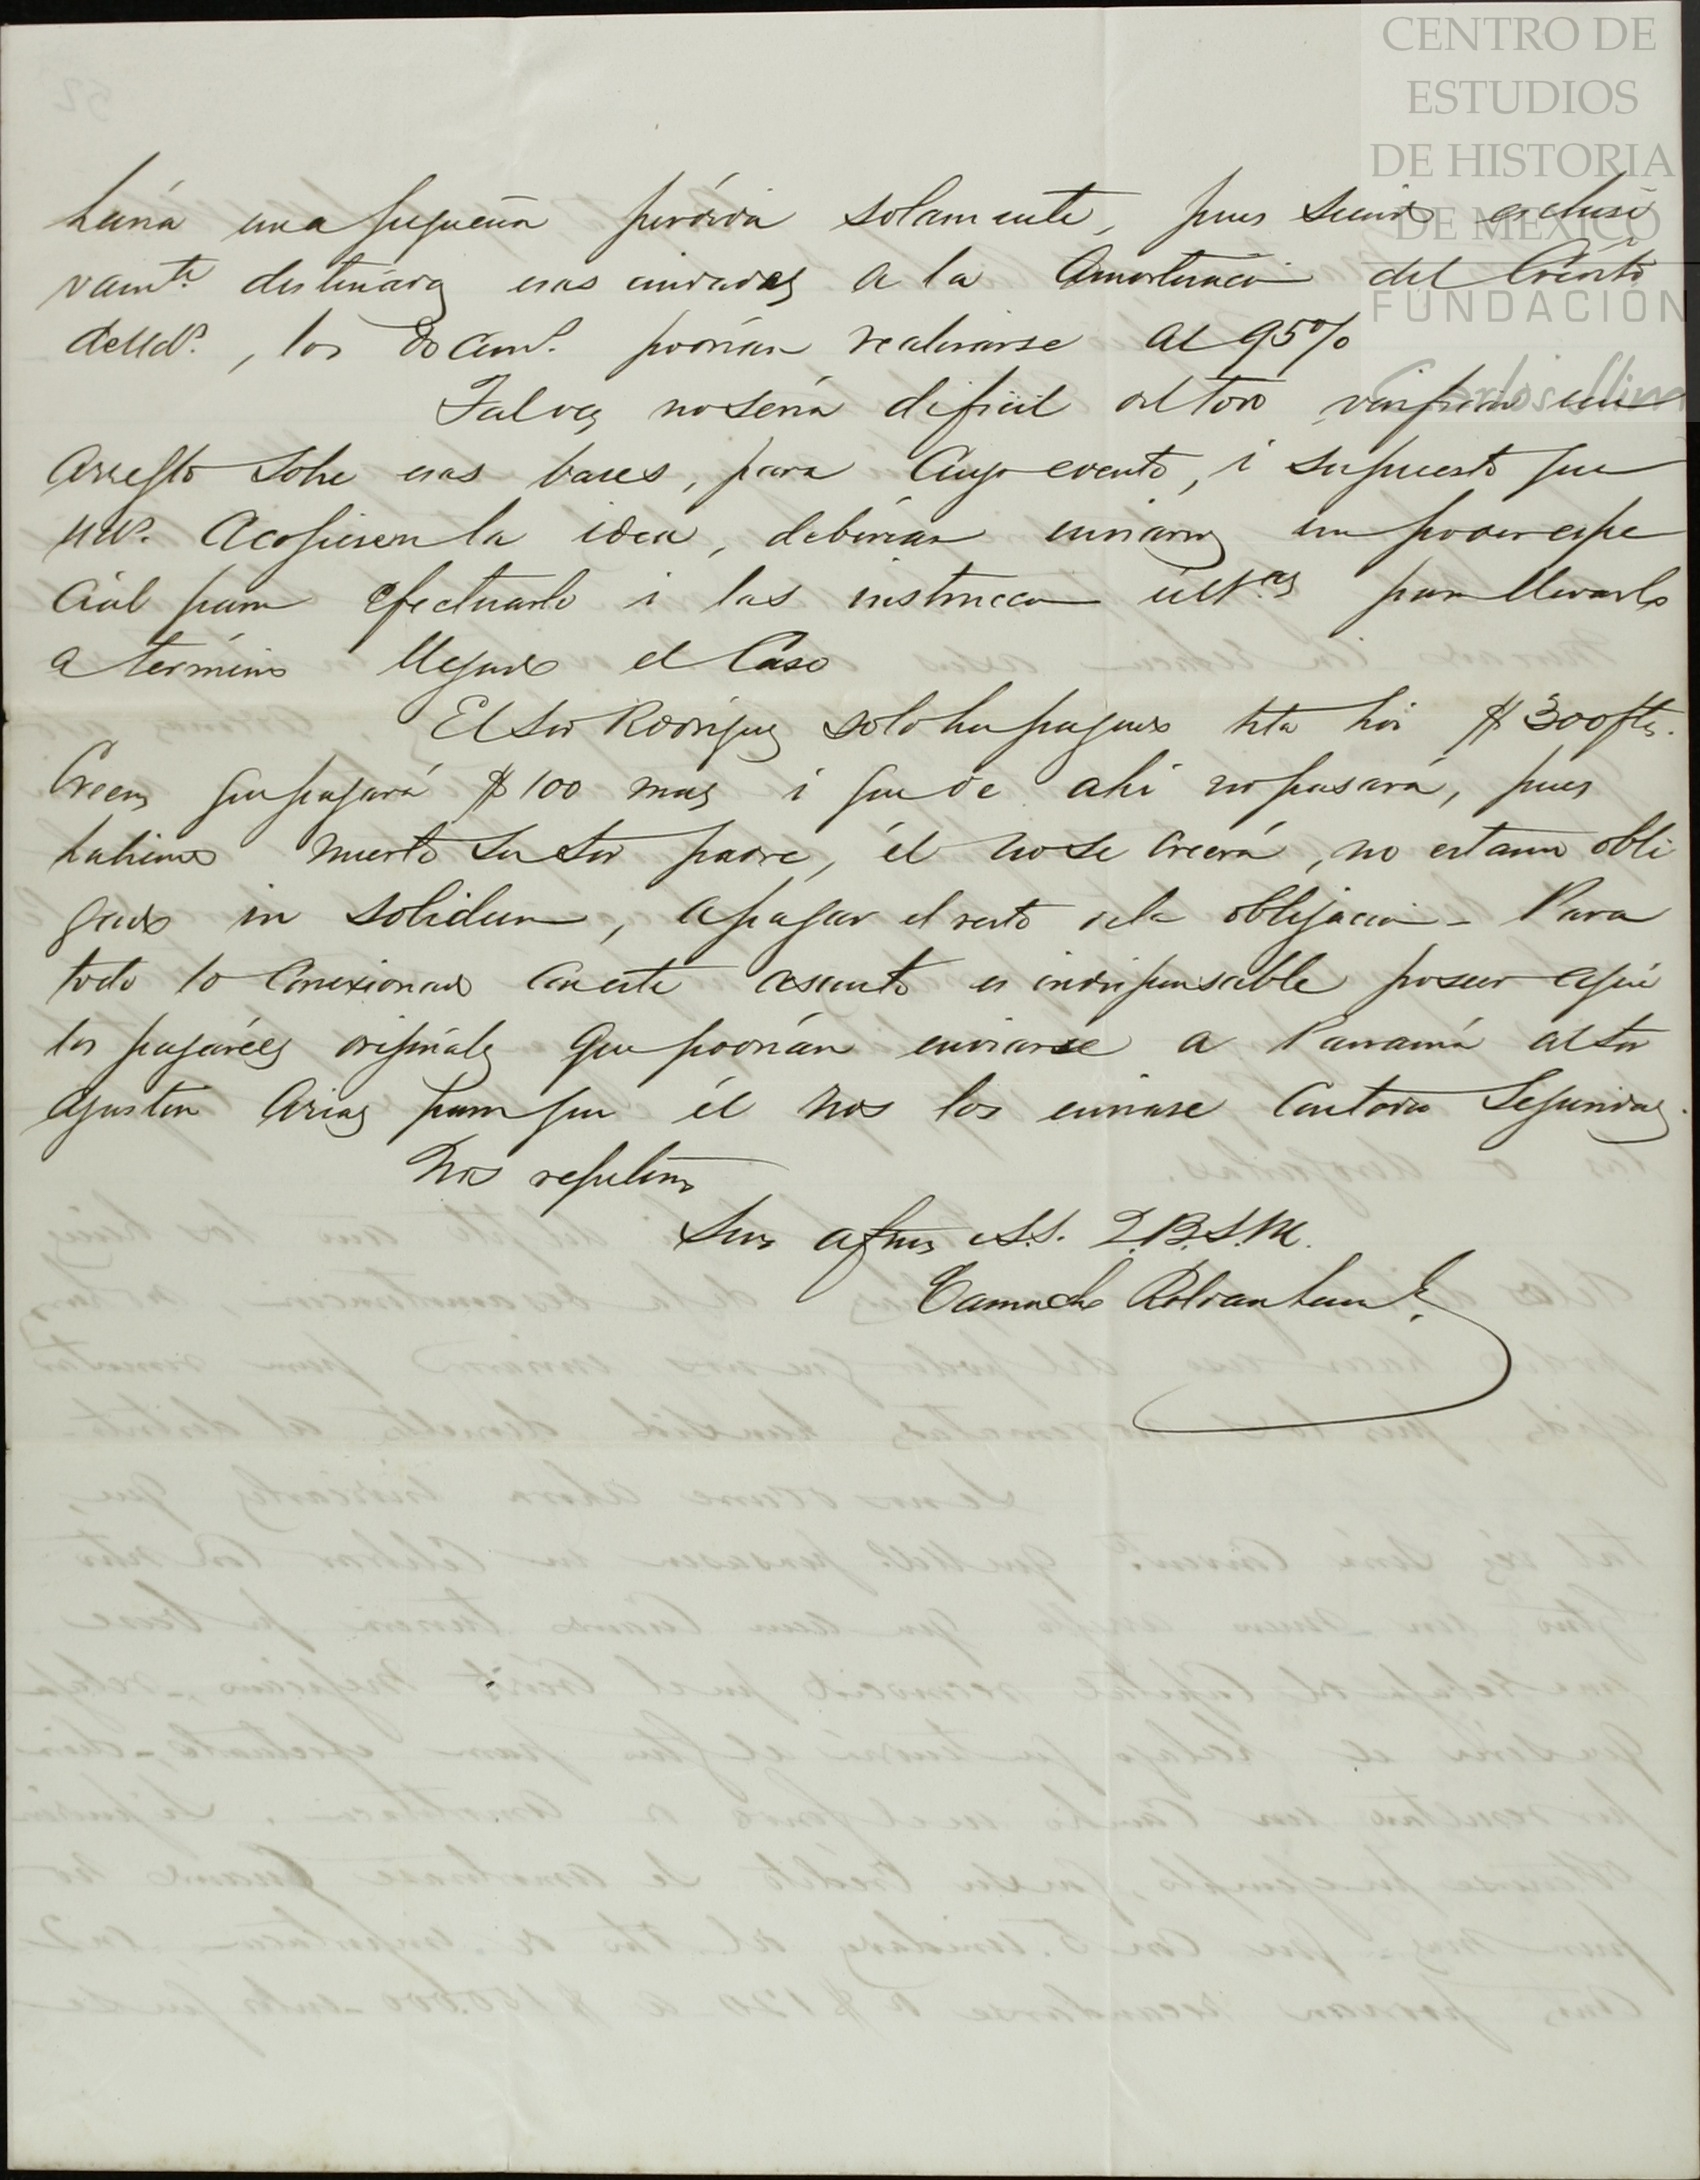 CENTRO DE
ESTUDIOS
DE HISTORIA
DE MÉXICO
FUNDACIÓN
haría una pequeña pérdida solamente, pues siendo esclusi
vamte. destinadas esas unidades a la amortización del Crédito
de Uds., los docums. podrían realizarse al 95%
Talvez no sería difícil del todo un
arreglo sobre esas bases, para cuyo evento, i supuesto que
UU. acojiesen la idea, deberían enviarnos un poder espe
cial para efectuarlo i las instruccion para llevarlo
a término llegado el Caso
El Sor Rodriguez solo ha pagado hta hoi $ 300 ftes.
Creemos que pagará $ 100 mas i que de ahí no pasará, pues
habiendo muerto su Sor padre, él no se creerá, no estando obli
gado in solidum, a pagar el resto de la obligacion - Para
todo lo Conexionado con este asunto es indispensable poseer aquí
los pagarées orijinales que podrían enviarse a Panamá al Sor
Agustin Arias para que él nos los enviase con todas Seguridades.
Nos repetimos
Sus afmos S.S. Q.B.S.M.
Camacho Roldan hermS.